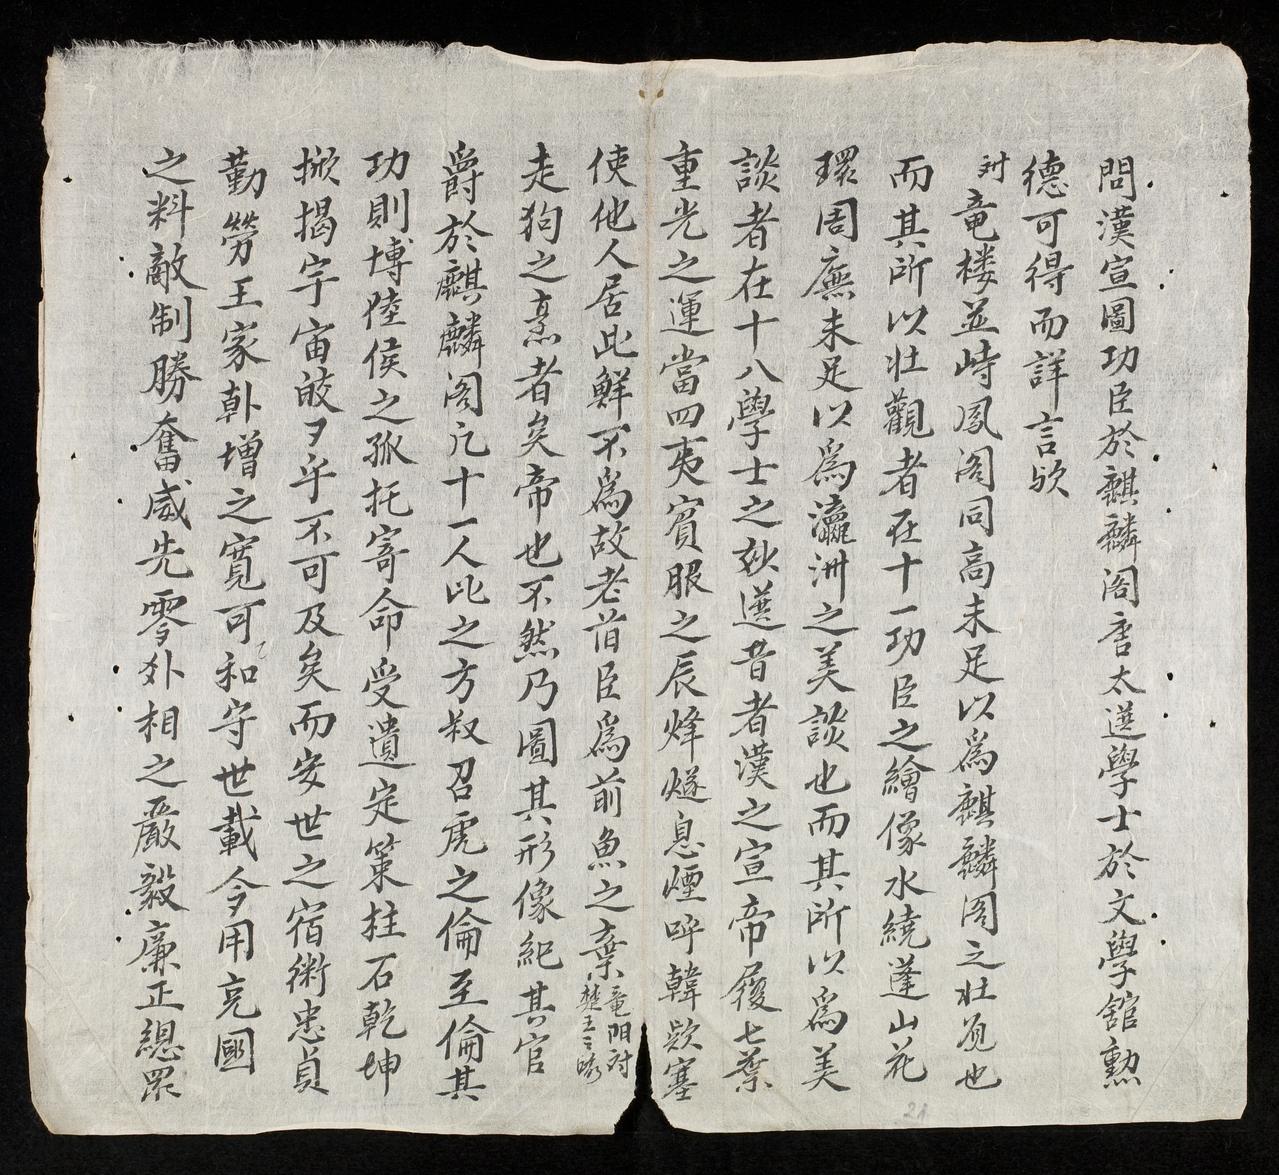 問漢宣圖功臣於麒麟阁唐太選學士於文學舘勲
德可得而詳言欤
対竜楼並峙鳳阁同高未足以爲麒麟阁之壮覌也
而其所以壮觀者在十一功臣之繪像水繞蓬山花
環周廡未足以爲瀛洲之美談也而其所以爲美
談者在十八學士之妙選昔者漢之宣帝履七葉
重光之運當四夷賓服之辰烽燧息煙呼韓欵塞
使他人居此鮮不爲故老旧臣爲前魚之棄竜阳対楚王云
走狗之烹者矣帝也不然乃圖其形像紀其官
爵於麒麟阁凢十一人此之方叔召虎之倫至倫其
功則博陸侯之孤托寄命受遺定策柱石乾坤
掀揭宇宙皎々乎不可及矣而安世之宿衛忠貞
勤勞王家韓增之寛可和守世載令用克國
之料敵制勝奮威先零外相之嚴毅廉正總眾